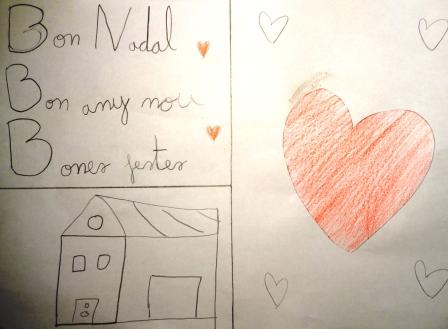 Bon Nadal
Bon any nou
Bones festes